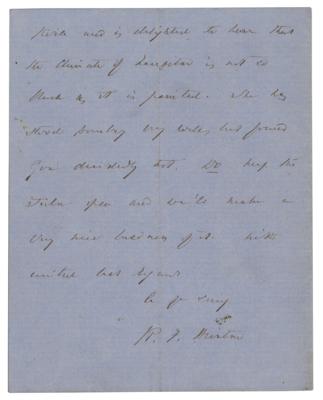 and is delighted to hear that
the climate of Zanzibar is not so
black as it is painted. She has
stood Bombay very well, but found
Goa decidedly hot. Do keep the
open and we'll make a
very nice business of it. With
united best regards
R. F. Burton